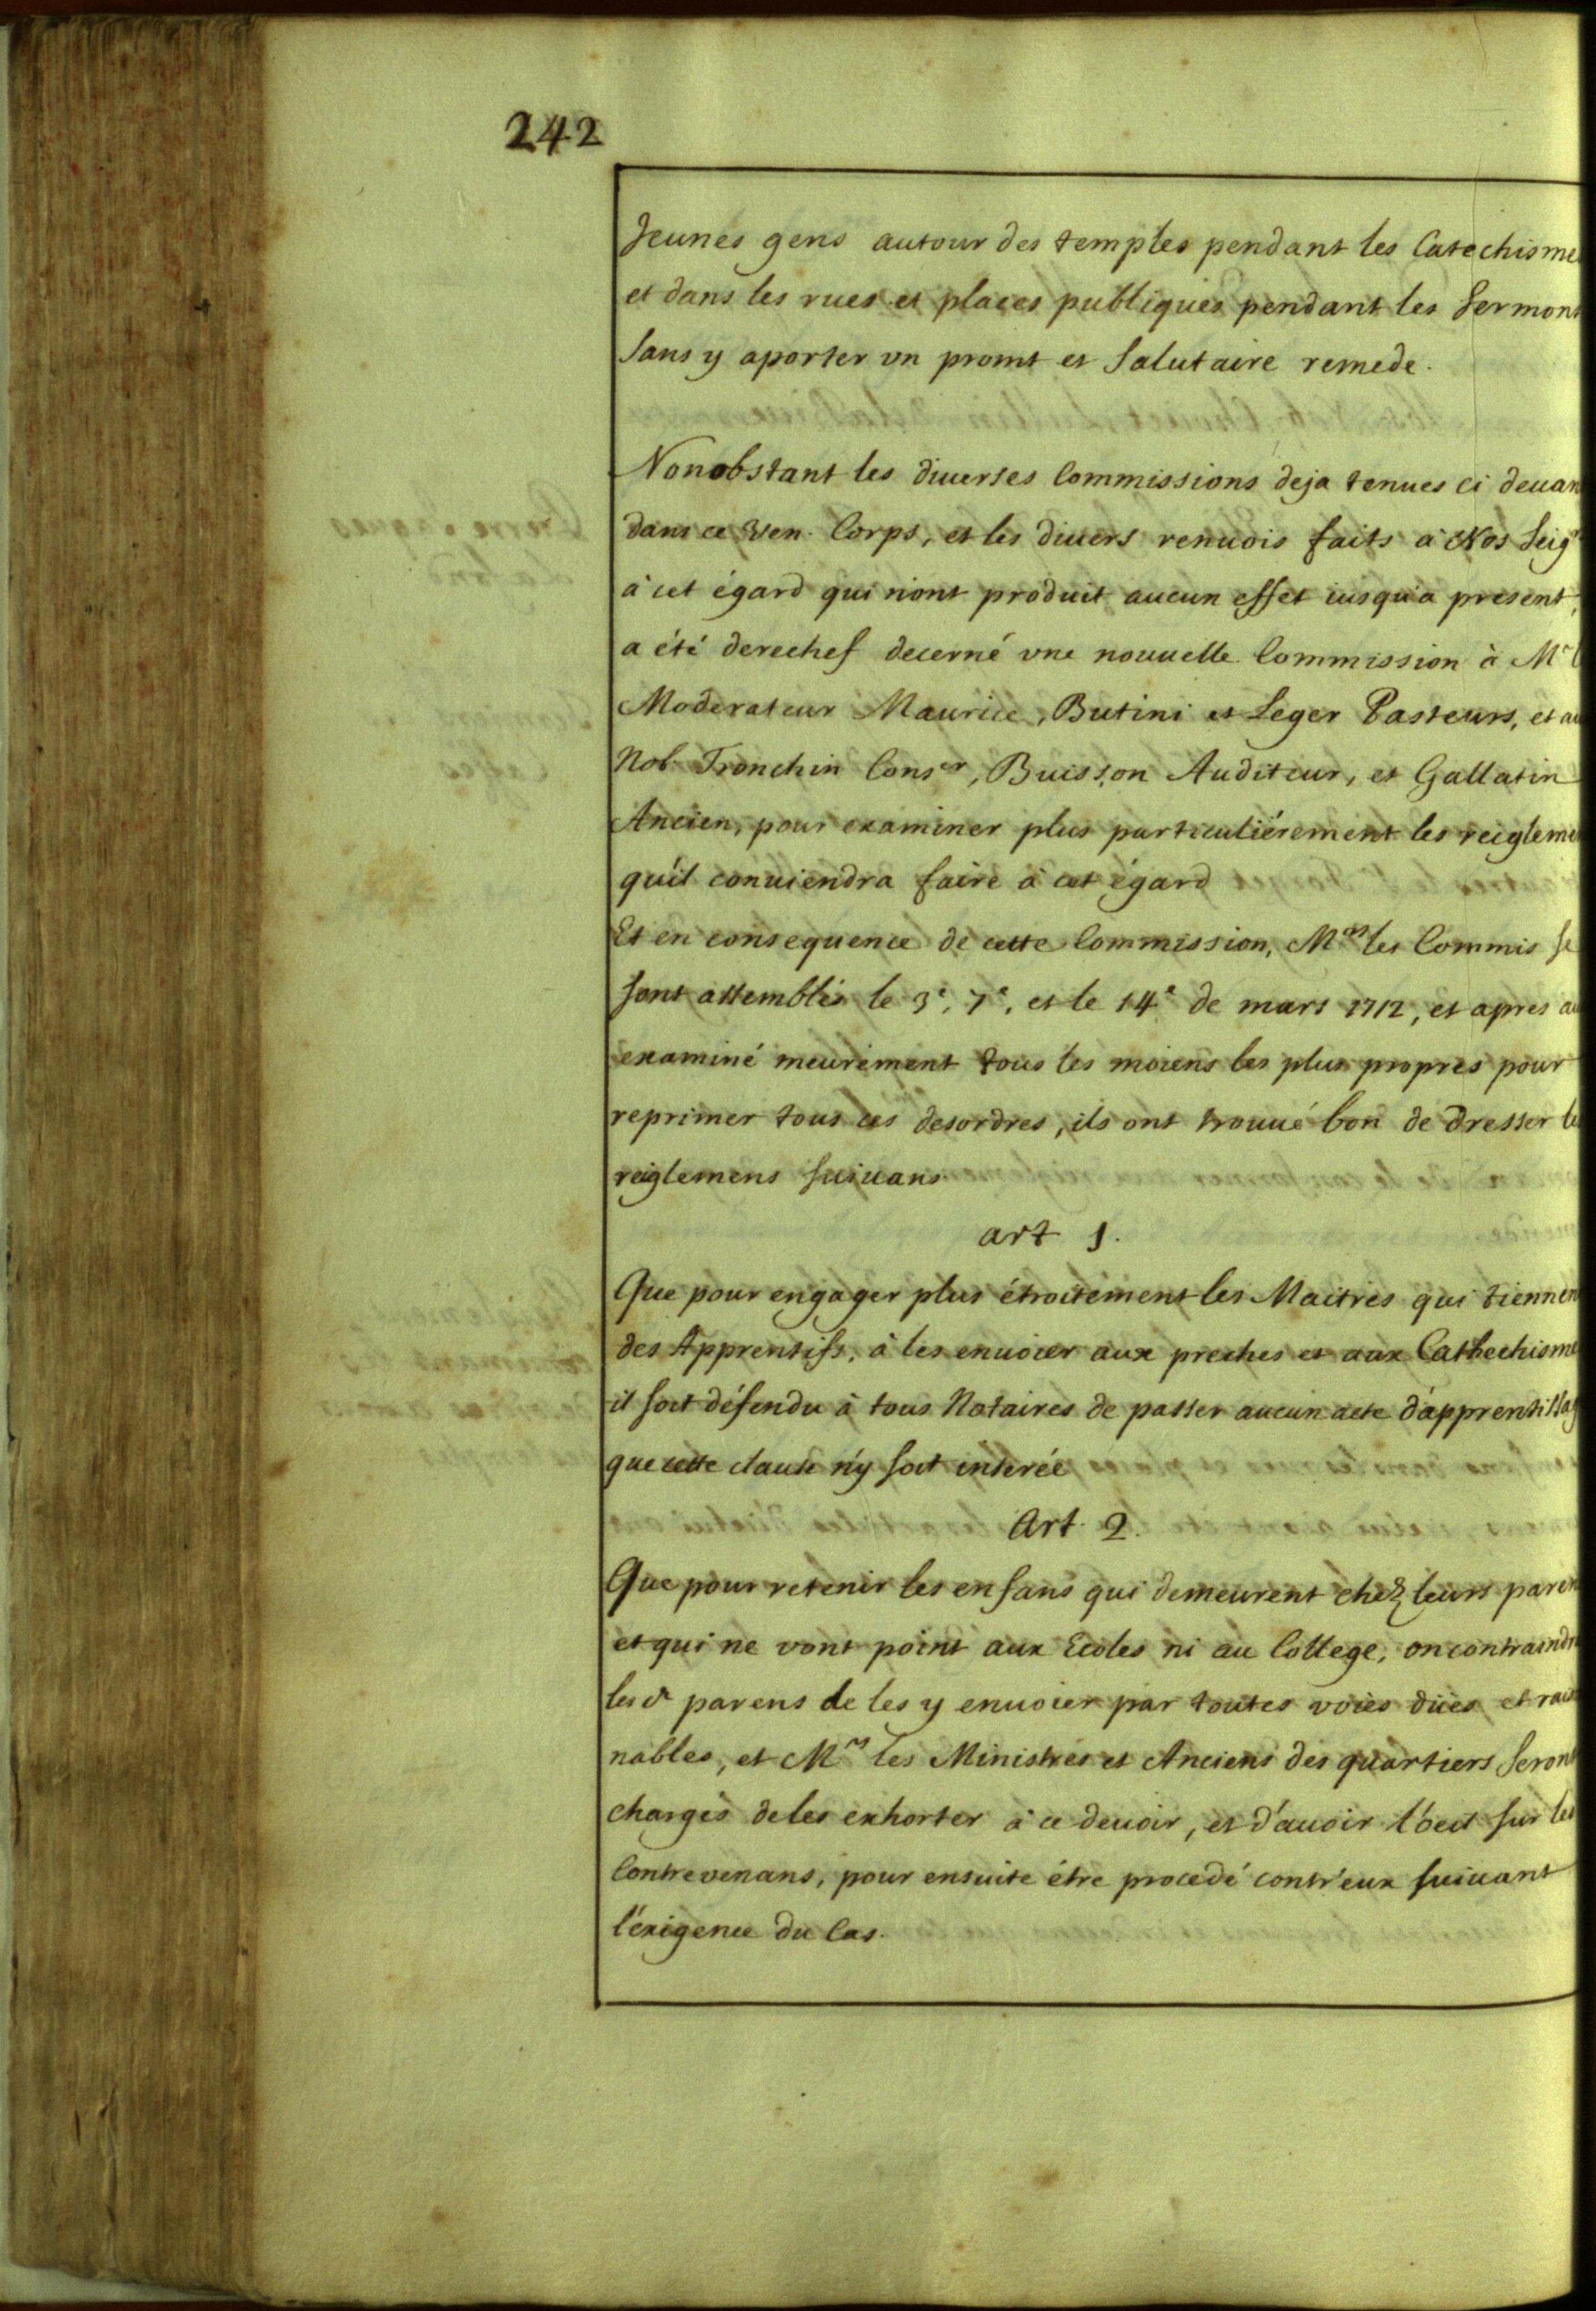 242
Jeunes gens autour des temples pendant les Catechisme
et dans les rues et places publiques pendant les Sermons
Sans y aporter vn promt et Salutaire remede.
Nonobstant les diuerses Commissions deja tenues ci deuan
dans ce Ven. Corps, et les diuers renuois faits à Nos Seigrs
à cet égard qui n'ont produit aucun effet iusqu'a present,
a été derechef decerné vne nouuelle Commission à Mr l
Moderateur Maurice, Butini et Leger Pasteurs, et au
Nob. Tronchin Conser, Buisson Auditeur, et Gallatin
Ancien, pour examiner plus particuliérement les reigleme
qu'il conuiendra faire à cet égard
Et en consequence de cette Commission, Mrs les Commis se
Sont assemblés le 3e, 7e, et le 14e de mars 1712, et apres au
examiné meurement tous les moiens les plus propres pour
reprimer tous ces desordres, ils ont trouué bon de dresser le
reiglemens Suiuans
art 1.
Que pour engager plus étroitement les Maitres qui tiennen
des Apprentifs, à les enuoier aux preches et aux Cathechisme
il soit défendu à tous Notaires de passer aucun acte d'apprentissag
que cette clause n'y soit inserée
Art. 2.
Que pour retenir les enfans qui demeurent chez leurs paren
et qui ne vont point aux Ecoles ni au College, on contraindr
les dt parens de les y enuoier par toutes voies dües et raiso
nables, et Mrs les Ministres et Anciens des quartiers Seront
chargés de les exhorter à ce deuoir, et d'auoir l'oeil sur les
Contrevenans, pour ensuite étre procedé contr'eux suiuant
l'éxigence du Cas.